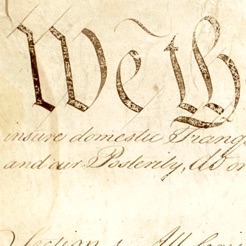 We th
insure domestic Tranq
and our Posterity, do or
Section. 1. All Legi